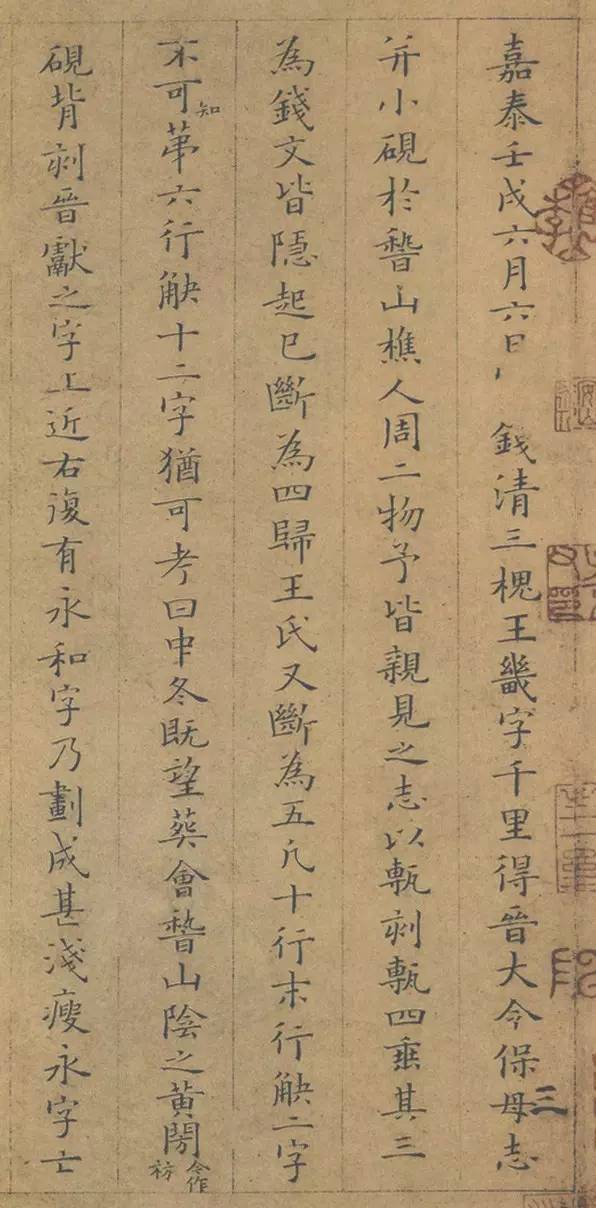 嘉泰壬戌六月六日 錢清三槐王畿字千里得晉大令保母志三
并小硯於稽山樵人周二物予皆親見之志以甎刻甎四垂其三
為錢文皆隱起已斷為四歸王氏又斷為五凡十行末行缺二字
不可知第六行缺十二字猶可考曰中冬既望葬會稽山陰之黃閍令作祊
硯背刻晉獻之字上近右復有永和字乃劃成甚淺瘦永字亡